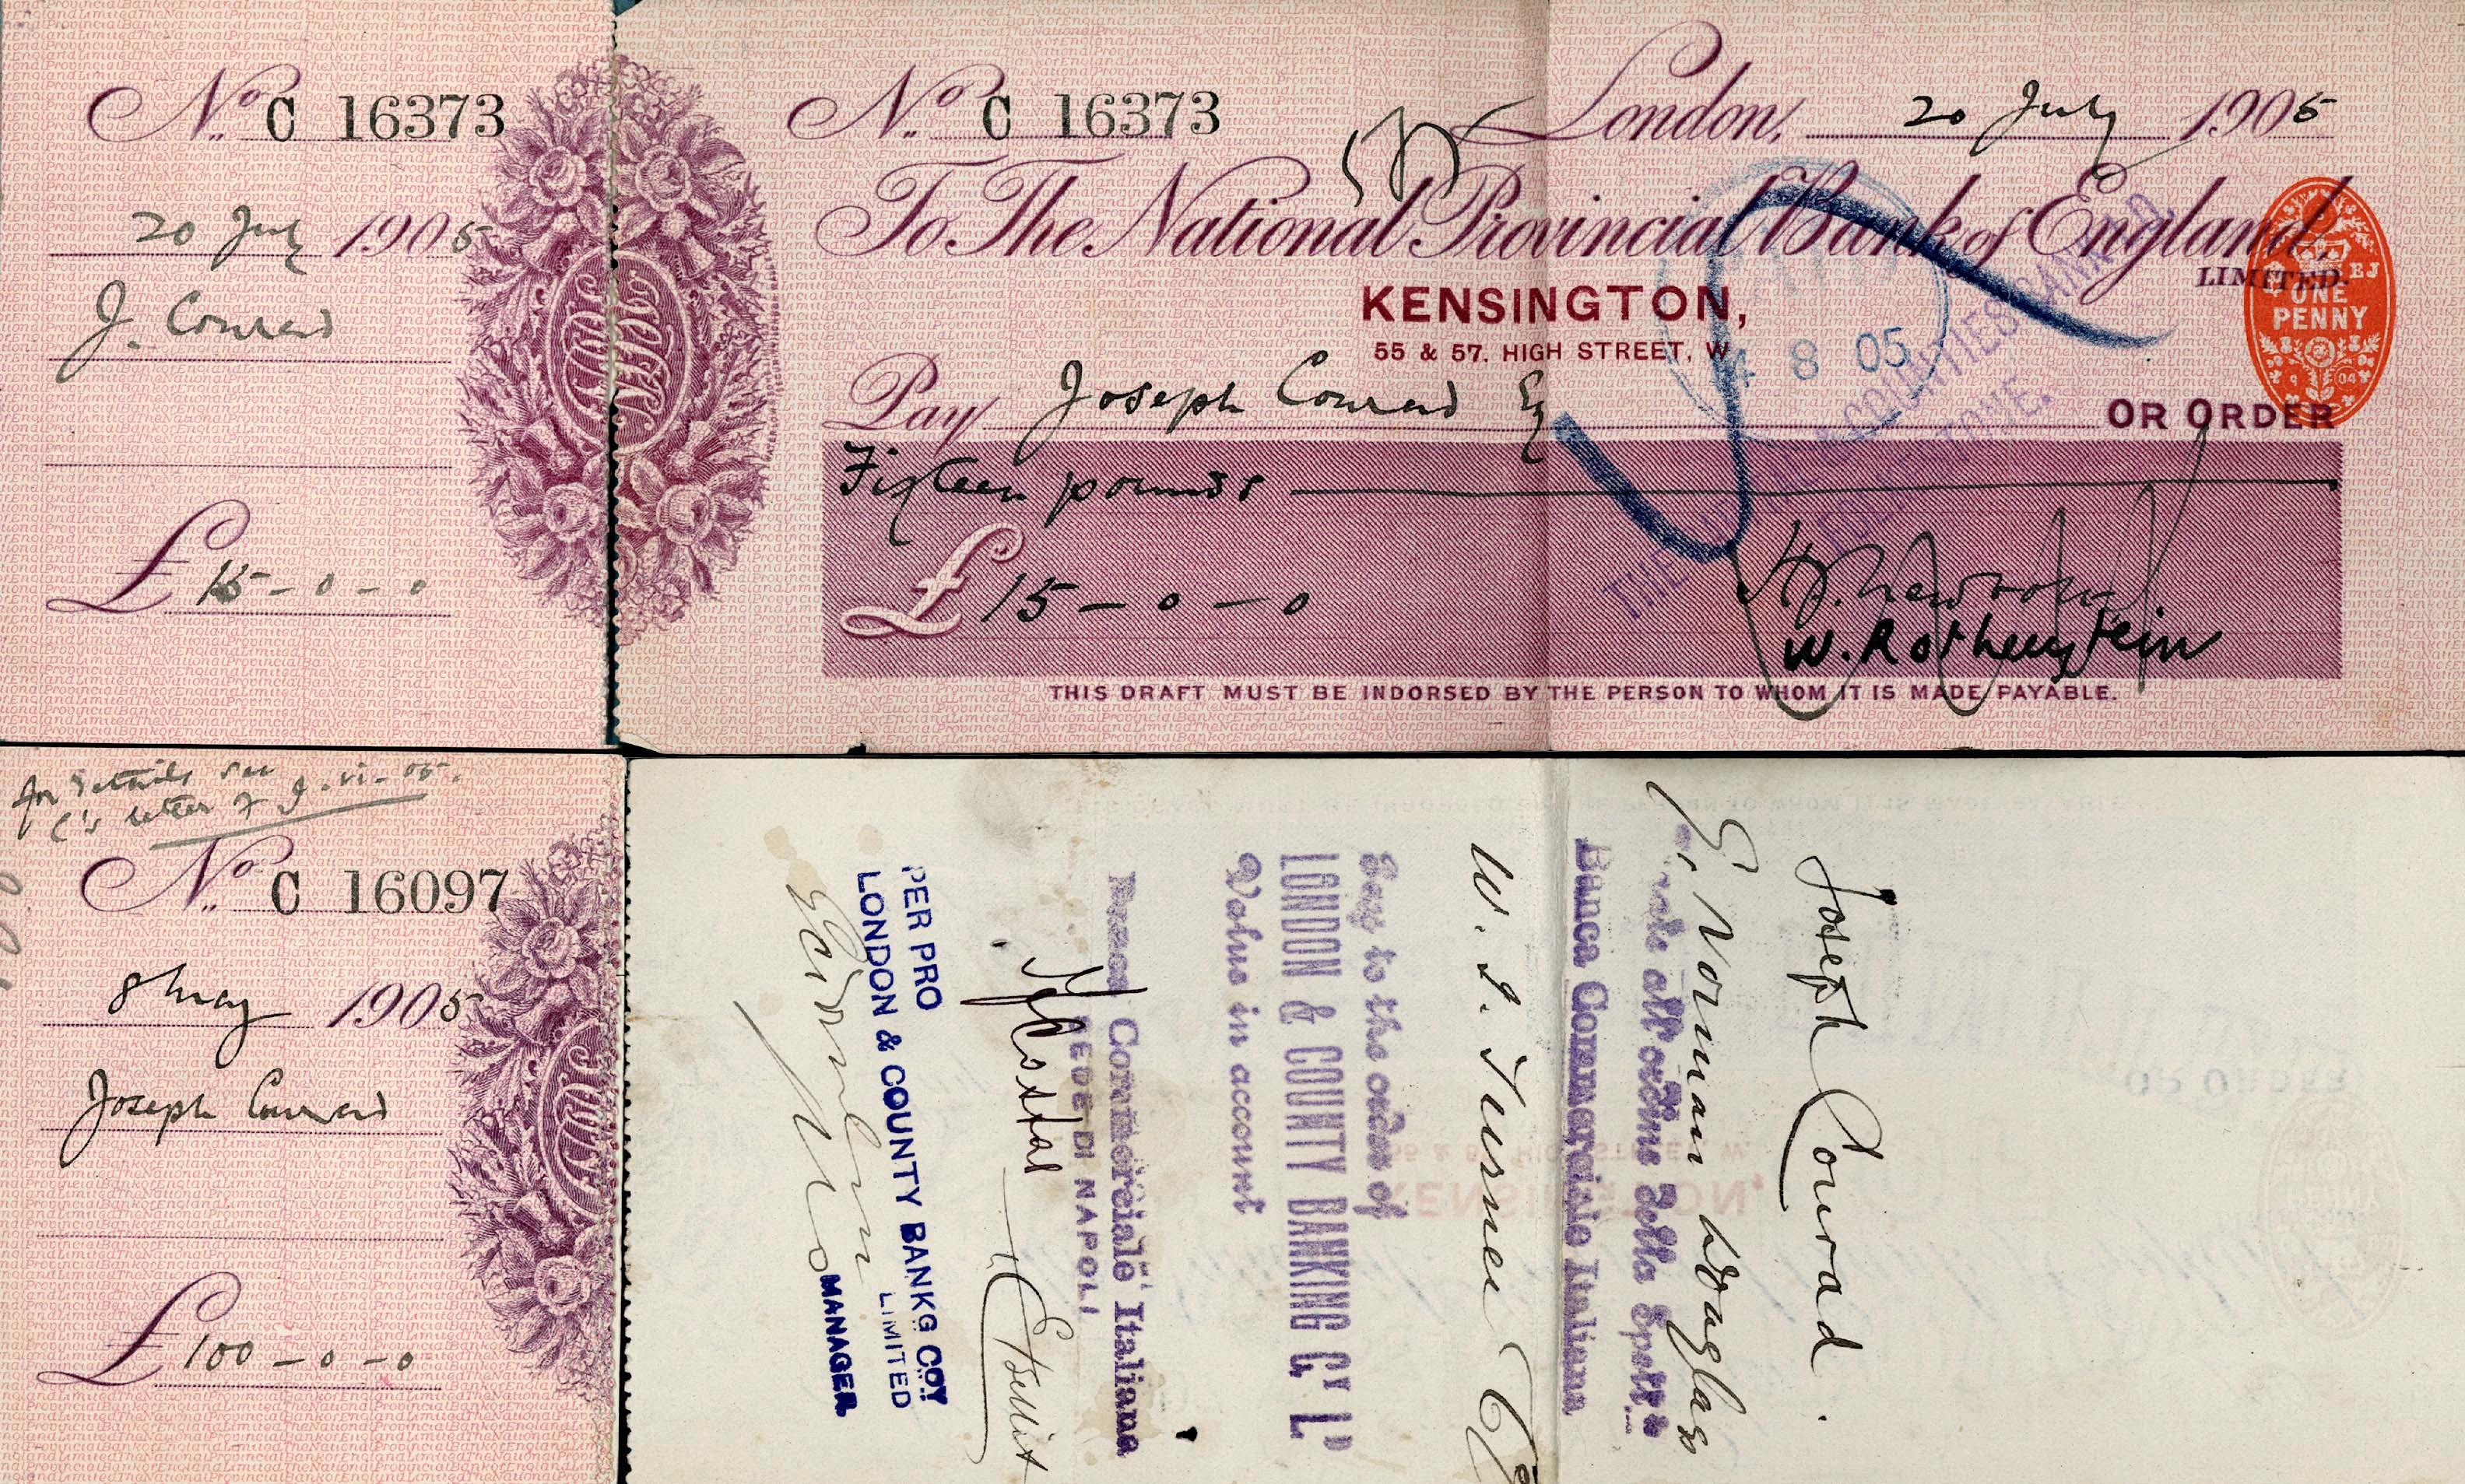 No. C 16373
20 July 1905
J. Conrad
£ 15 - 0 - 0
No. C 16373
London, 20 July 1905
To The National Provincial Bank of England,
LIMITED.
KENSINGTON,
55 & 57. HIGH STREET, W.
4 8 05
ONE
PENNY
Pay Joseph Conrad Esq
OR ORDER
Fifteen pounds
£ 15 - 0 - 0
H. J. Newbolt
W. Rothenstein
THIS DRAFT MUST BE INDORSED BY THE PERSON TO WHOM IT IS MADE PAYABLE.
for details see
C's letter of
No. C 16097
8 May 1905
Joseph Conrad
£ 100 - 0 - 0
Joseph Conrad.
G. Norman Douglas
all'ordine della Spett.
Banca Commerciale Italiana
W. J. Turner
Pay to the order of
LONDON & COUNTY BANKING Cy Ld
Value in account
Banca Commerciale Italiana
SEDE DI NAPOLI
PER PRO
LONDON & COUNTY BANKG COY
LIMITED
MANAGER